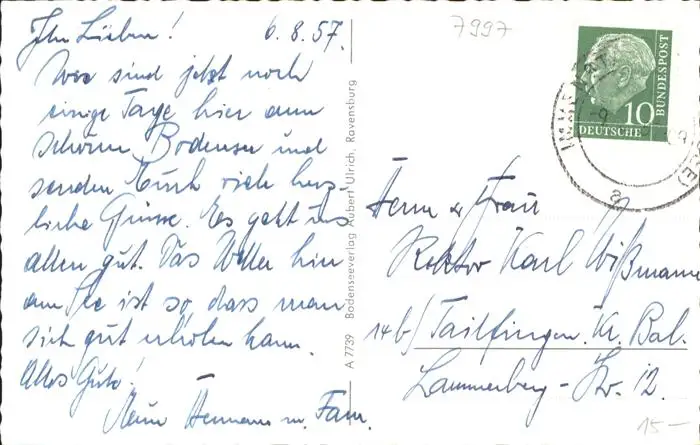 Ihr Lieben! 6.8.57.
Wir sind jetzt noch
einige Tage hier am
schönen Bodensee und
senden Euch viele herz-
liche Grüsse. Es geht uns
allen gut. Das Wetter hier
am See ist so, dass man
sich gut erholen kann.
Alles Gute!
Hermann m. Fam.
A 7739 Bodenseeverlag Aubert Ulrich, Ravensburg
7997
10
DEUTSCHE
BUNDESPOST
Herrn u. Frau
Rektor Karl Wißmann
14b/ Tailfingen Kr. Bal.
Lammerberg-Str. 12.
15-